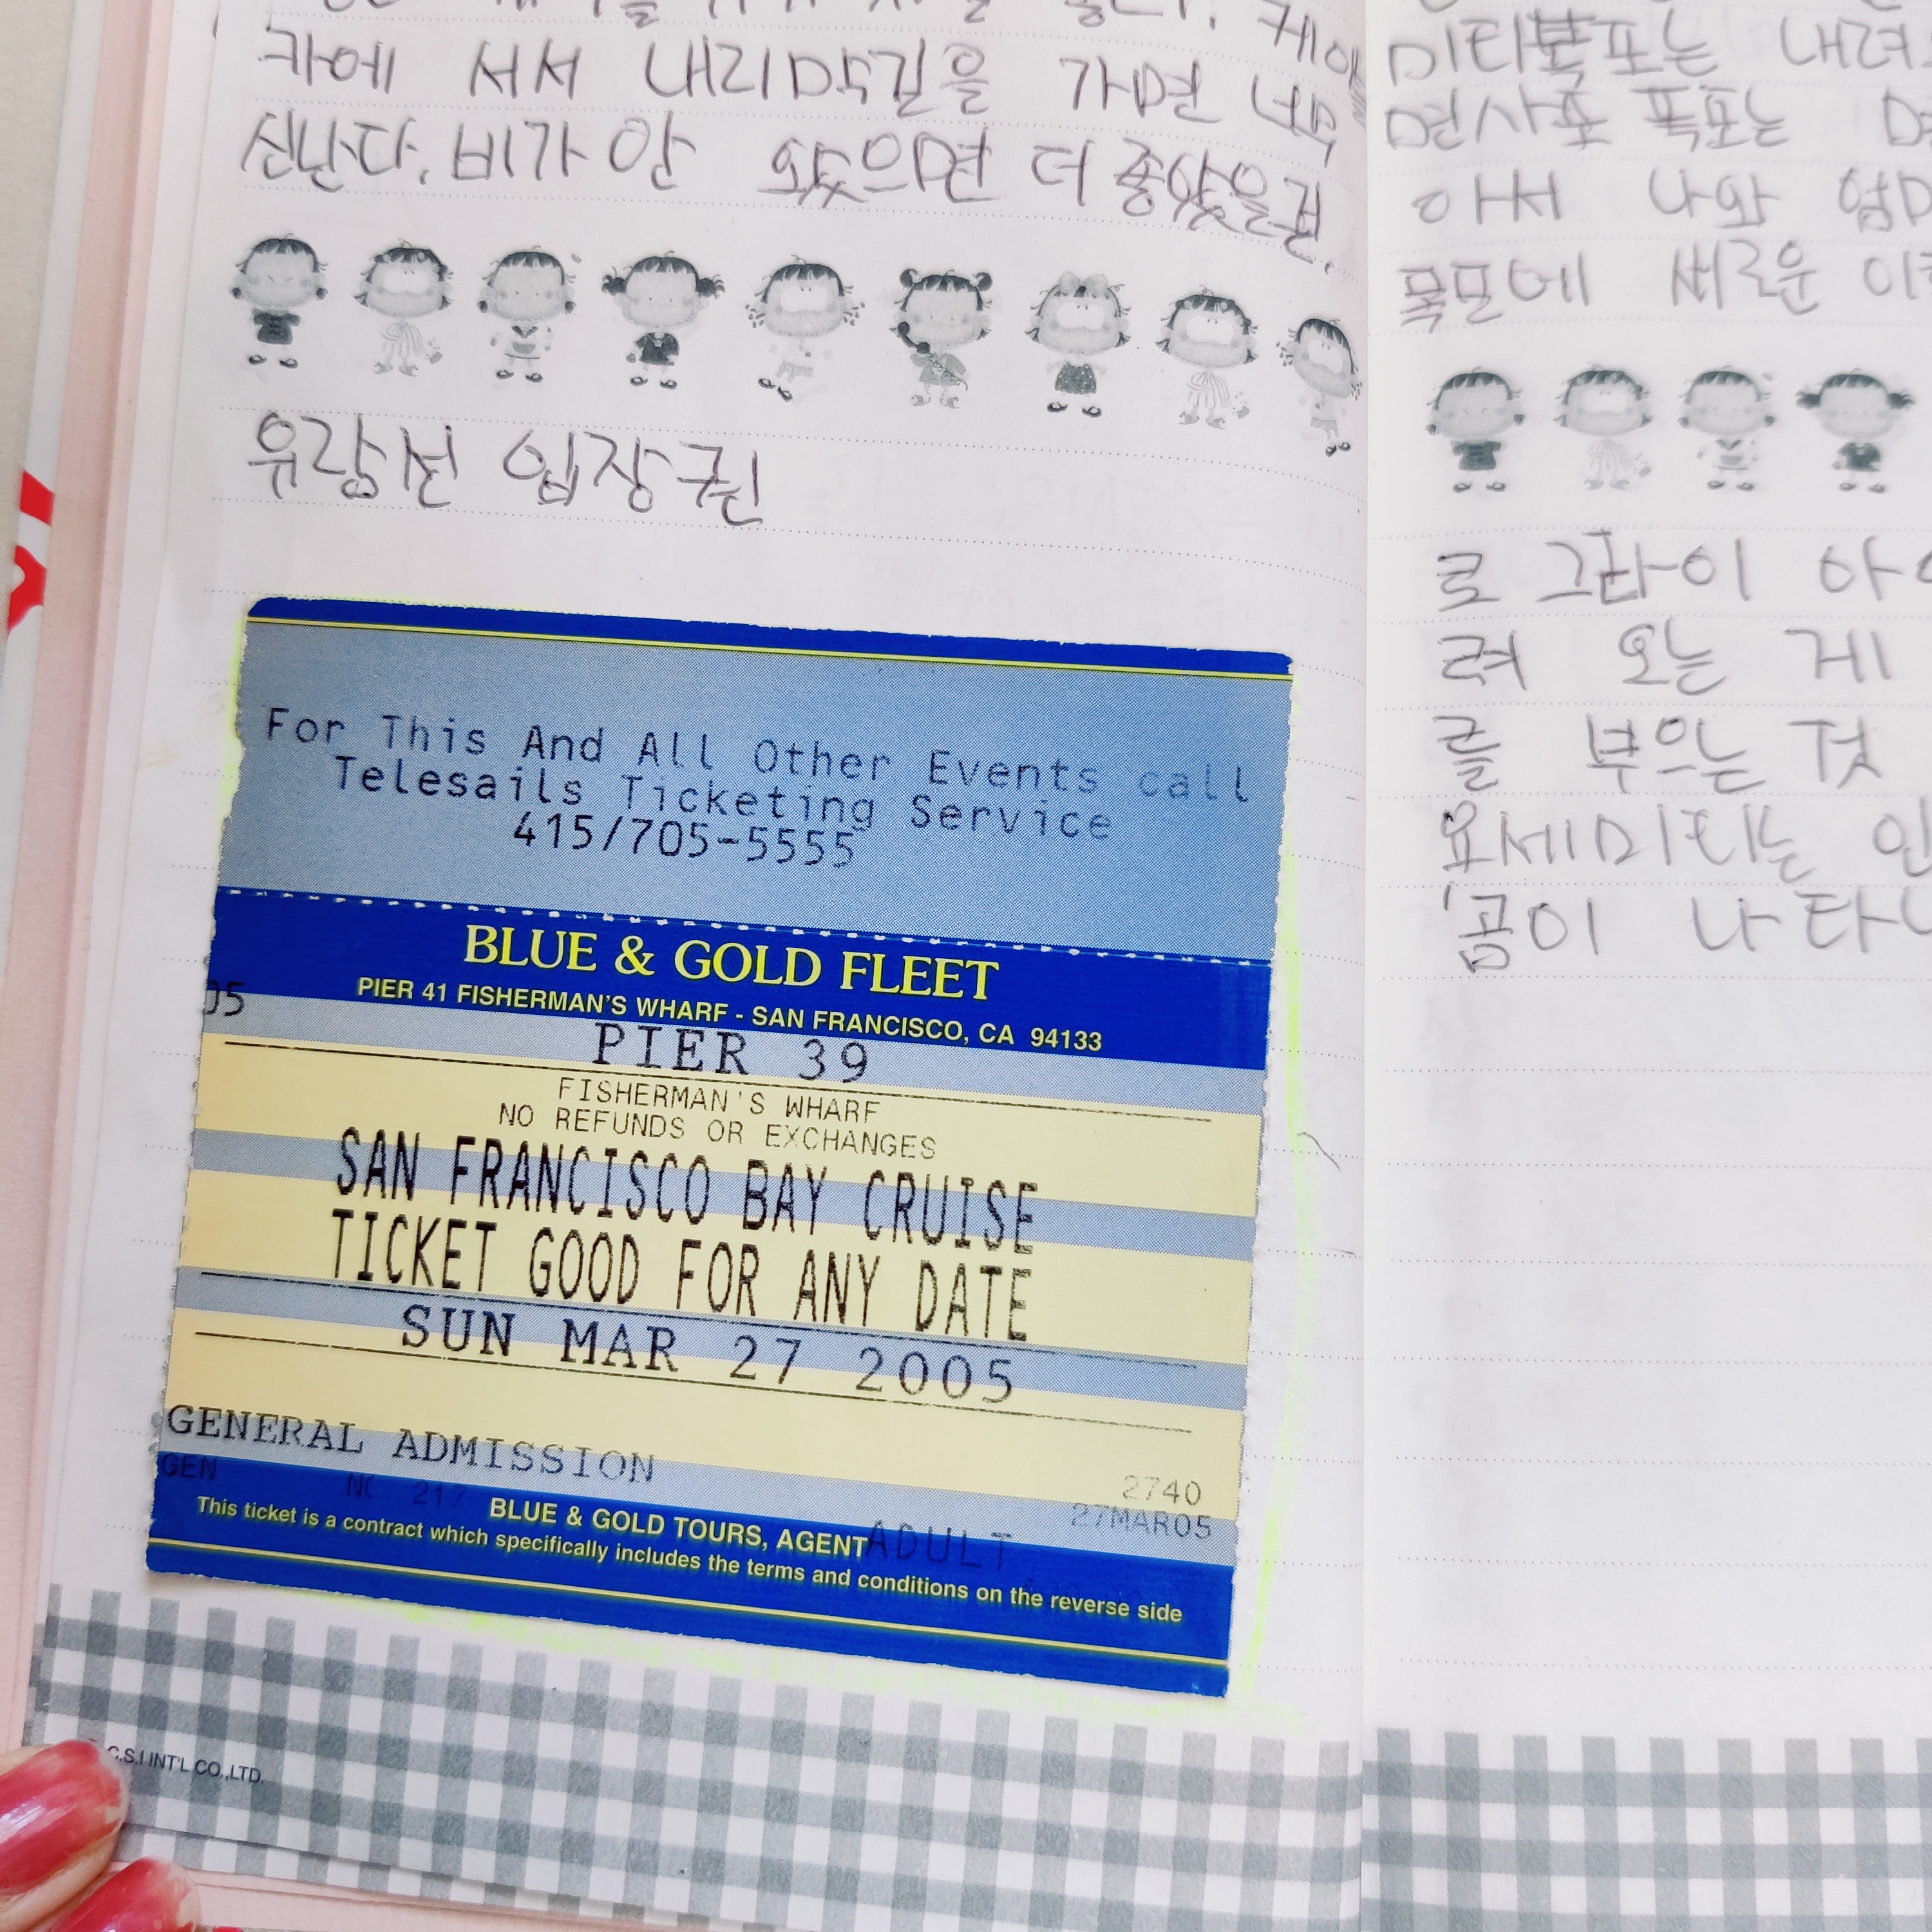 카에 서서 내리막길을 가면 너무
신난다. 비가 안 왔으면 더 좋았을걸.
유람선 입장권
For This And All Other Events call
Telesails Ticketing Service
415/705-5555
BLUE & GOLD FLEET
PIER 41 FISHERMAN'S WHARF - SAN FRANCISCO, CA 94133
05
PIER 39
FISHERMAN'S WHARF
NO REFUNDS OR EXCHANGES
SAN FRANCISCO BAY CRUISE
TICKET GOOD FOR ANY DATE
SUN MAR 27 2005
GENERAL ADMISSION
2740
GEN
217
27MAR05
BLUE & GOLD TOURS, AGENT
ADULT
This ticket is a contract which specifically includes the terms and conditions on the reverse side
C.S.I INT'L CO.,LTD.
내려
면사포 폭포는
아서 나와
새로운
오는 게
부으는 것
요세미티는
곰이